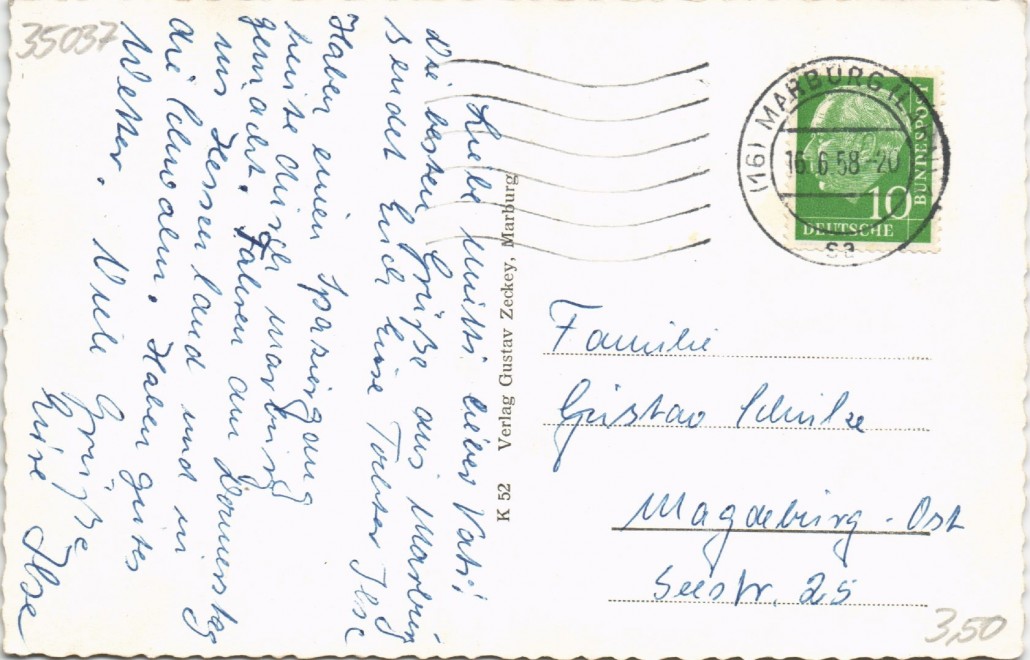 35037
Liebe Mutti lieber Vati!
Die besten Grüße aus Marburg
sendet Euch Eure Tochter Ilse
Haben einen Spaziergang
heute durch Marburg
gemacht. Fahren am Donnerstag
ins Hessenland und in
die Schwalm. Haben gutes
Wetter. Viele Grüße
Eure Ilse
K 52 Verlag Gustav Zeckey, Marburg
(16) MARBURG (L
16.6.58-20
sa
BUNDESPOST
10
DEUTSCHE
Familie
Gustav Schulze
Magdeburg-Ost
Seestr. 25
3,50